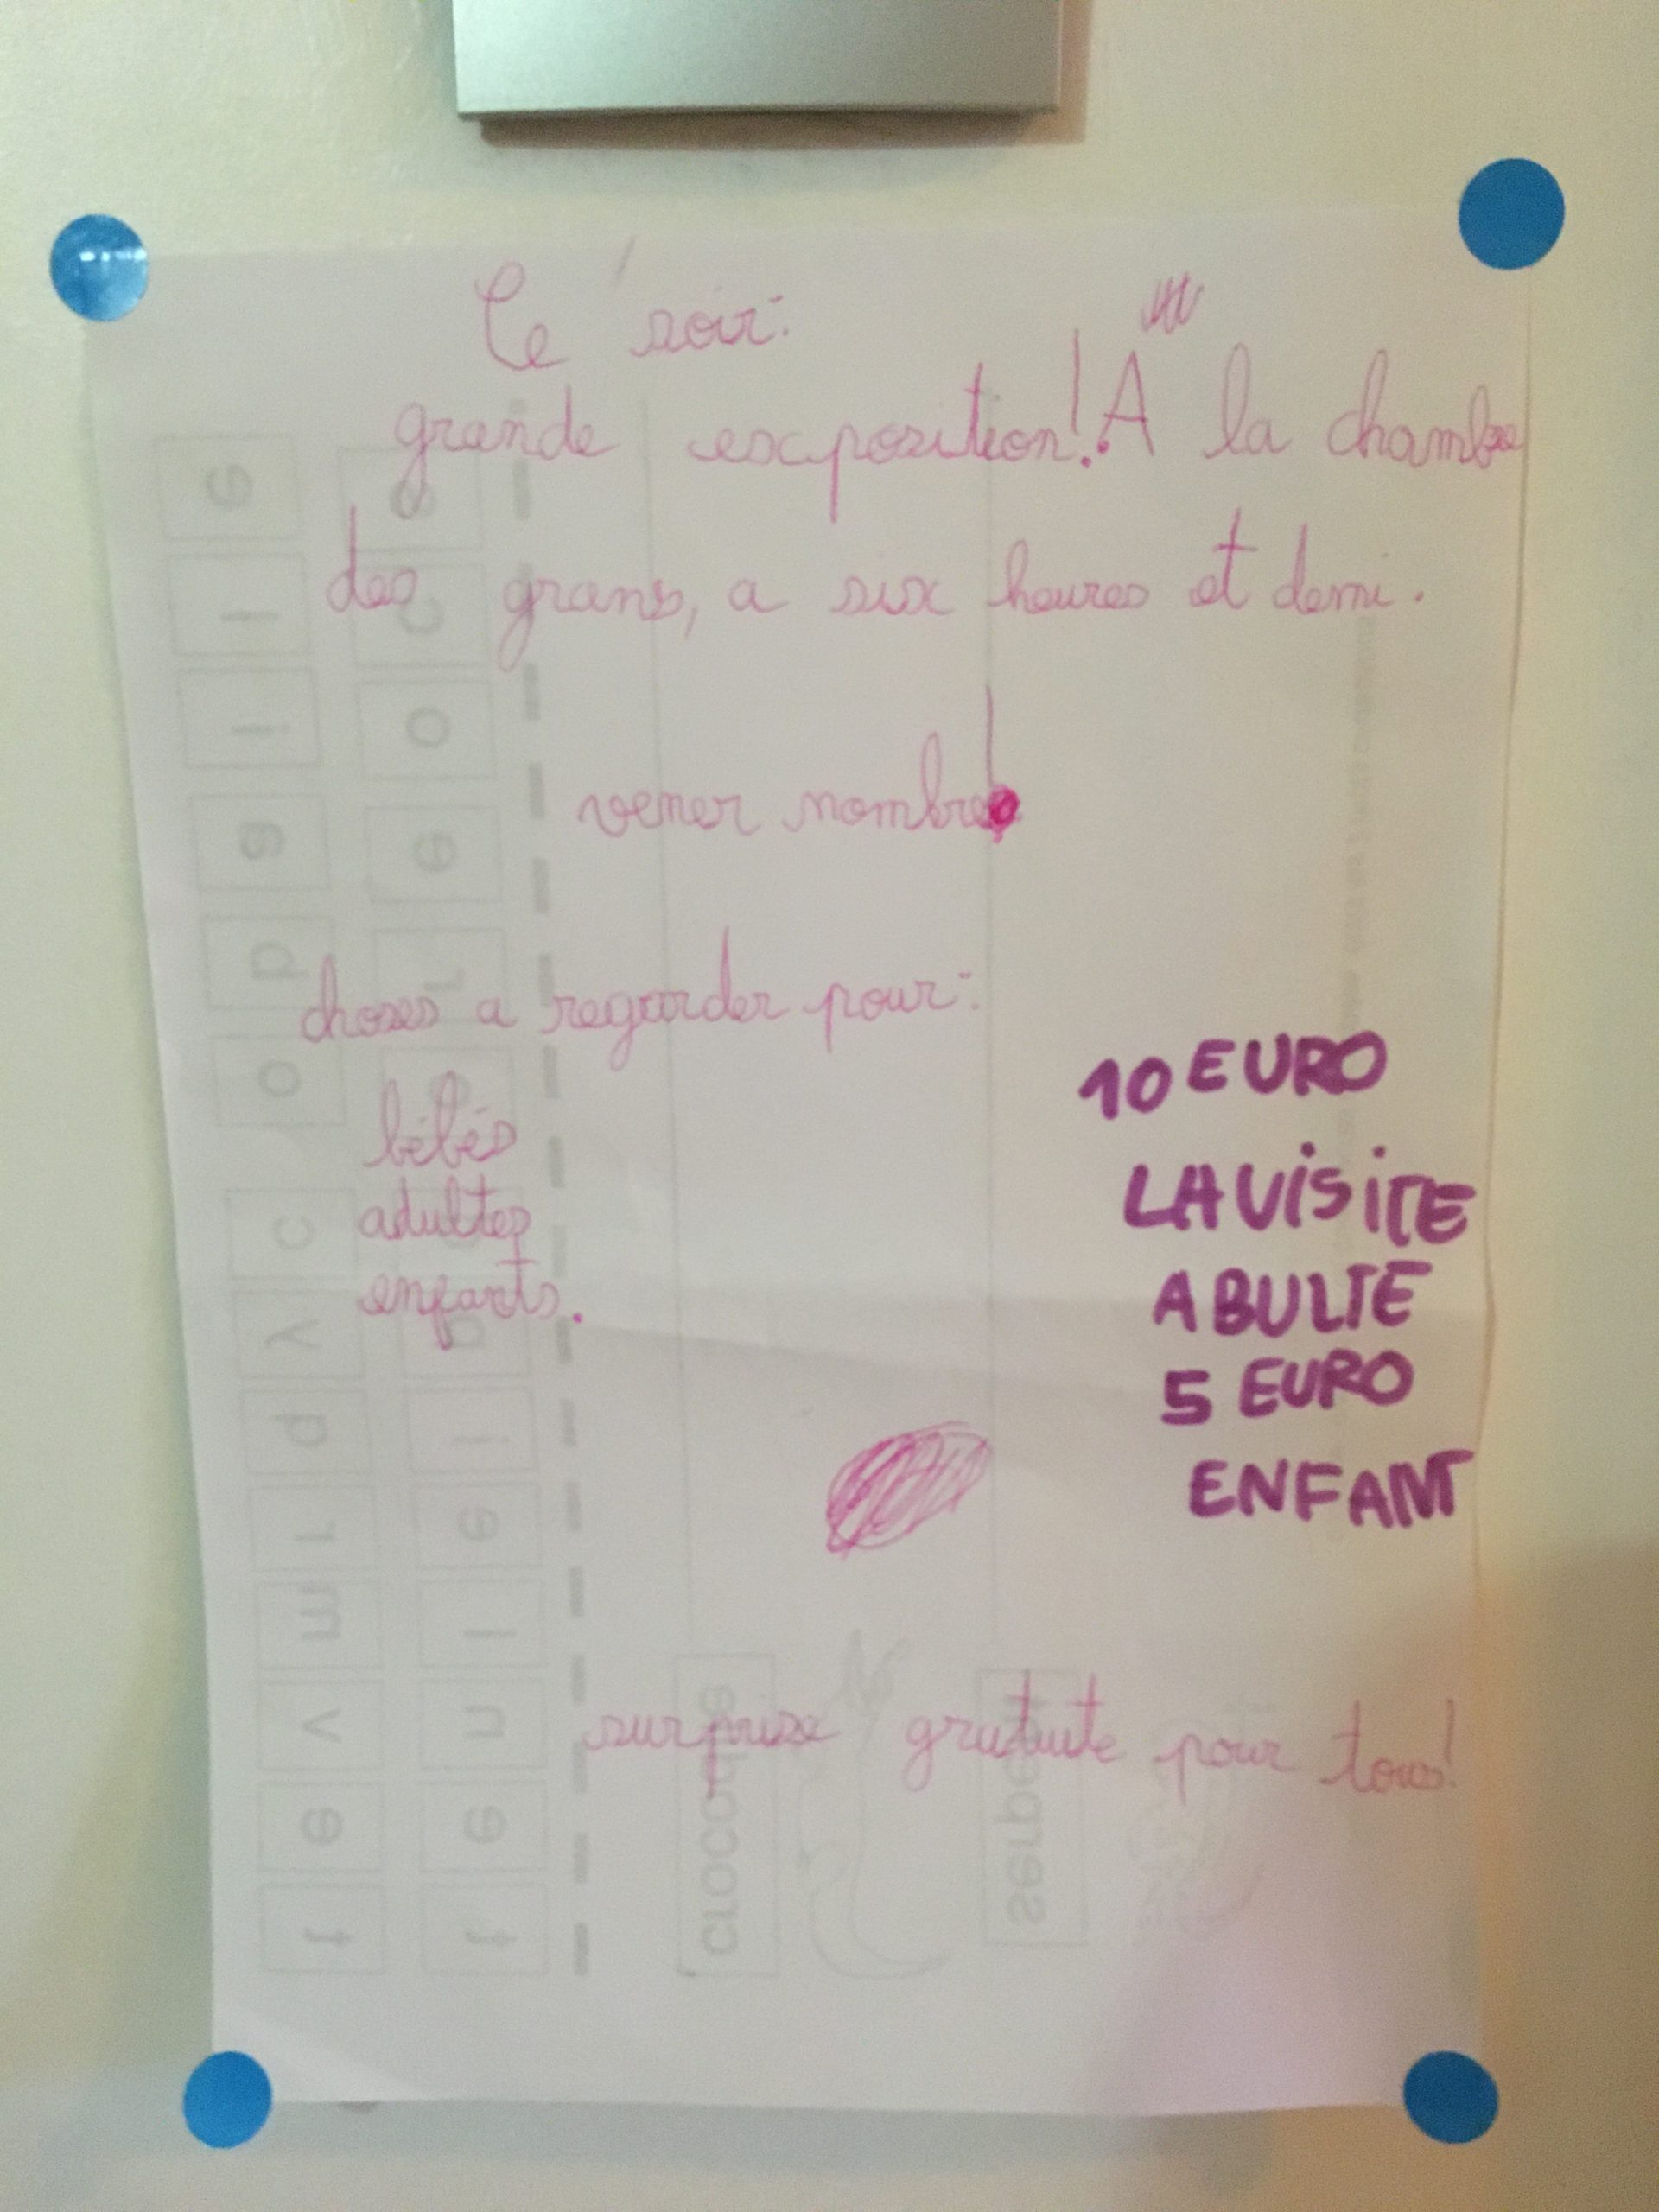 Ce soir:
grande exposition! À la chambre
des grans, a six heures et demi.
vener nombre!
choses a regarder pour:
bébés
adultes
enfants.
10 EURO
LA VISITE
ABULTE
5 EURO
ENFANT
surprise gratuite pour tous!
e l i a b o c y d r m v e t
e c o e r
i e l n e t
crocodile
serpent